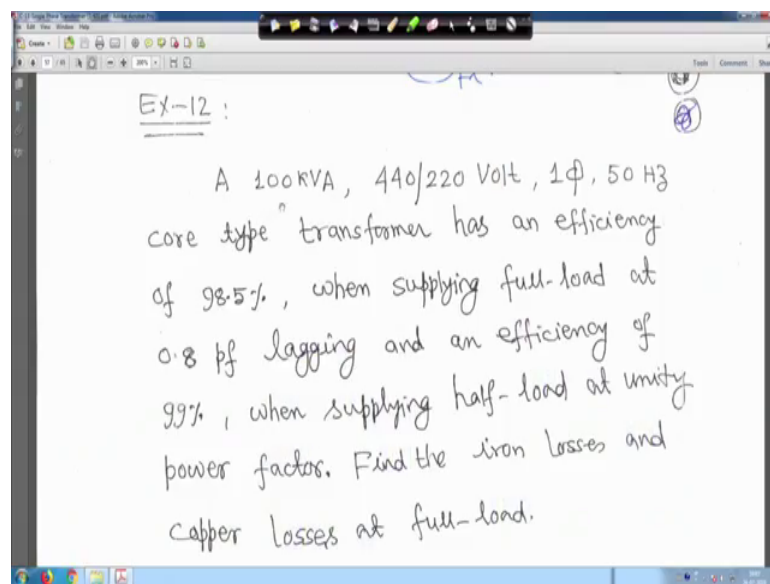 Create
17
200%
Tools Comment
EX-12 :
A 100KVA, 440/220 Volt, 1φ, 50 Hz
core type transformer has an efficiency
of 98.5%, when supplying full-load at
0.8 pf lagging and an efficiency of
99%, when supplying half-load at unity
power factor. Find the iron losses and
copper losses at full-load.